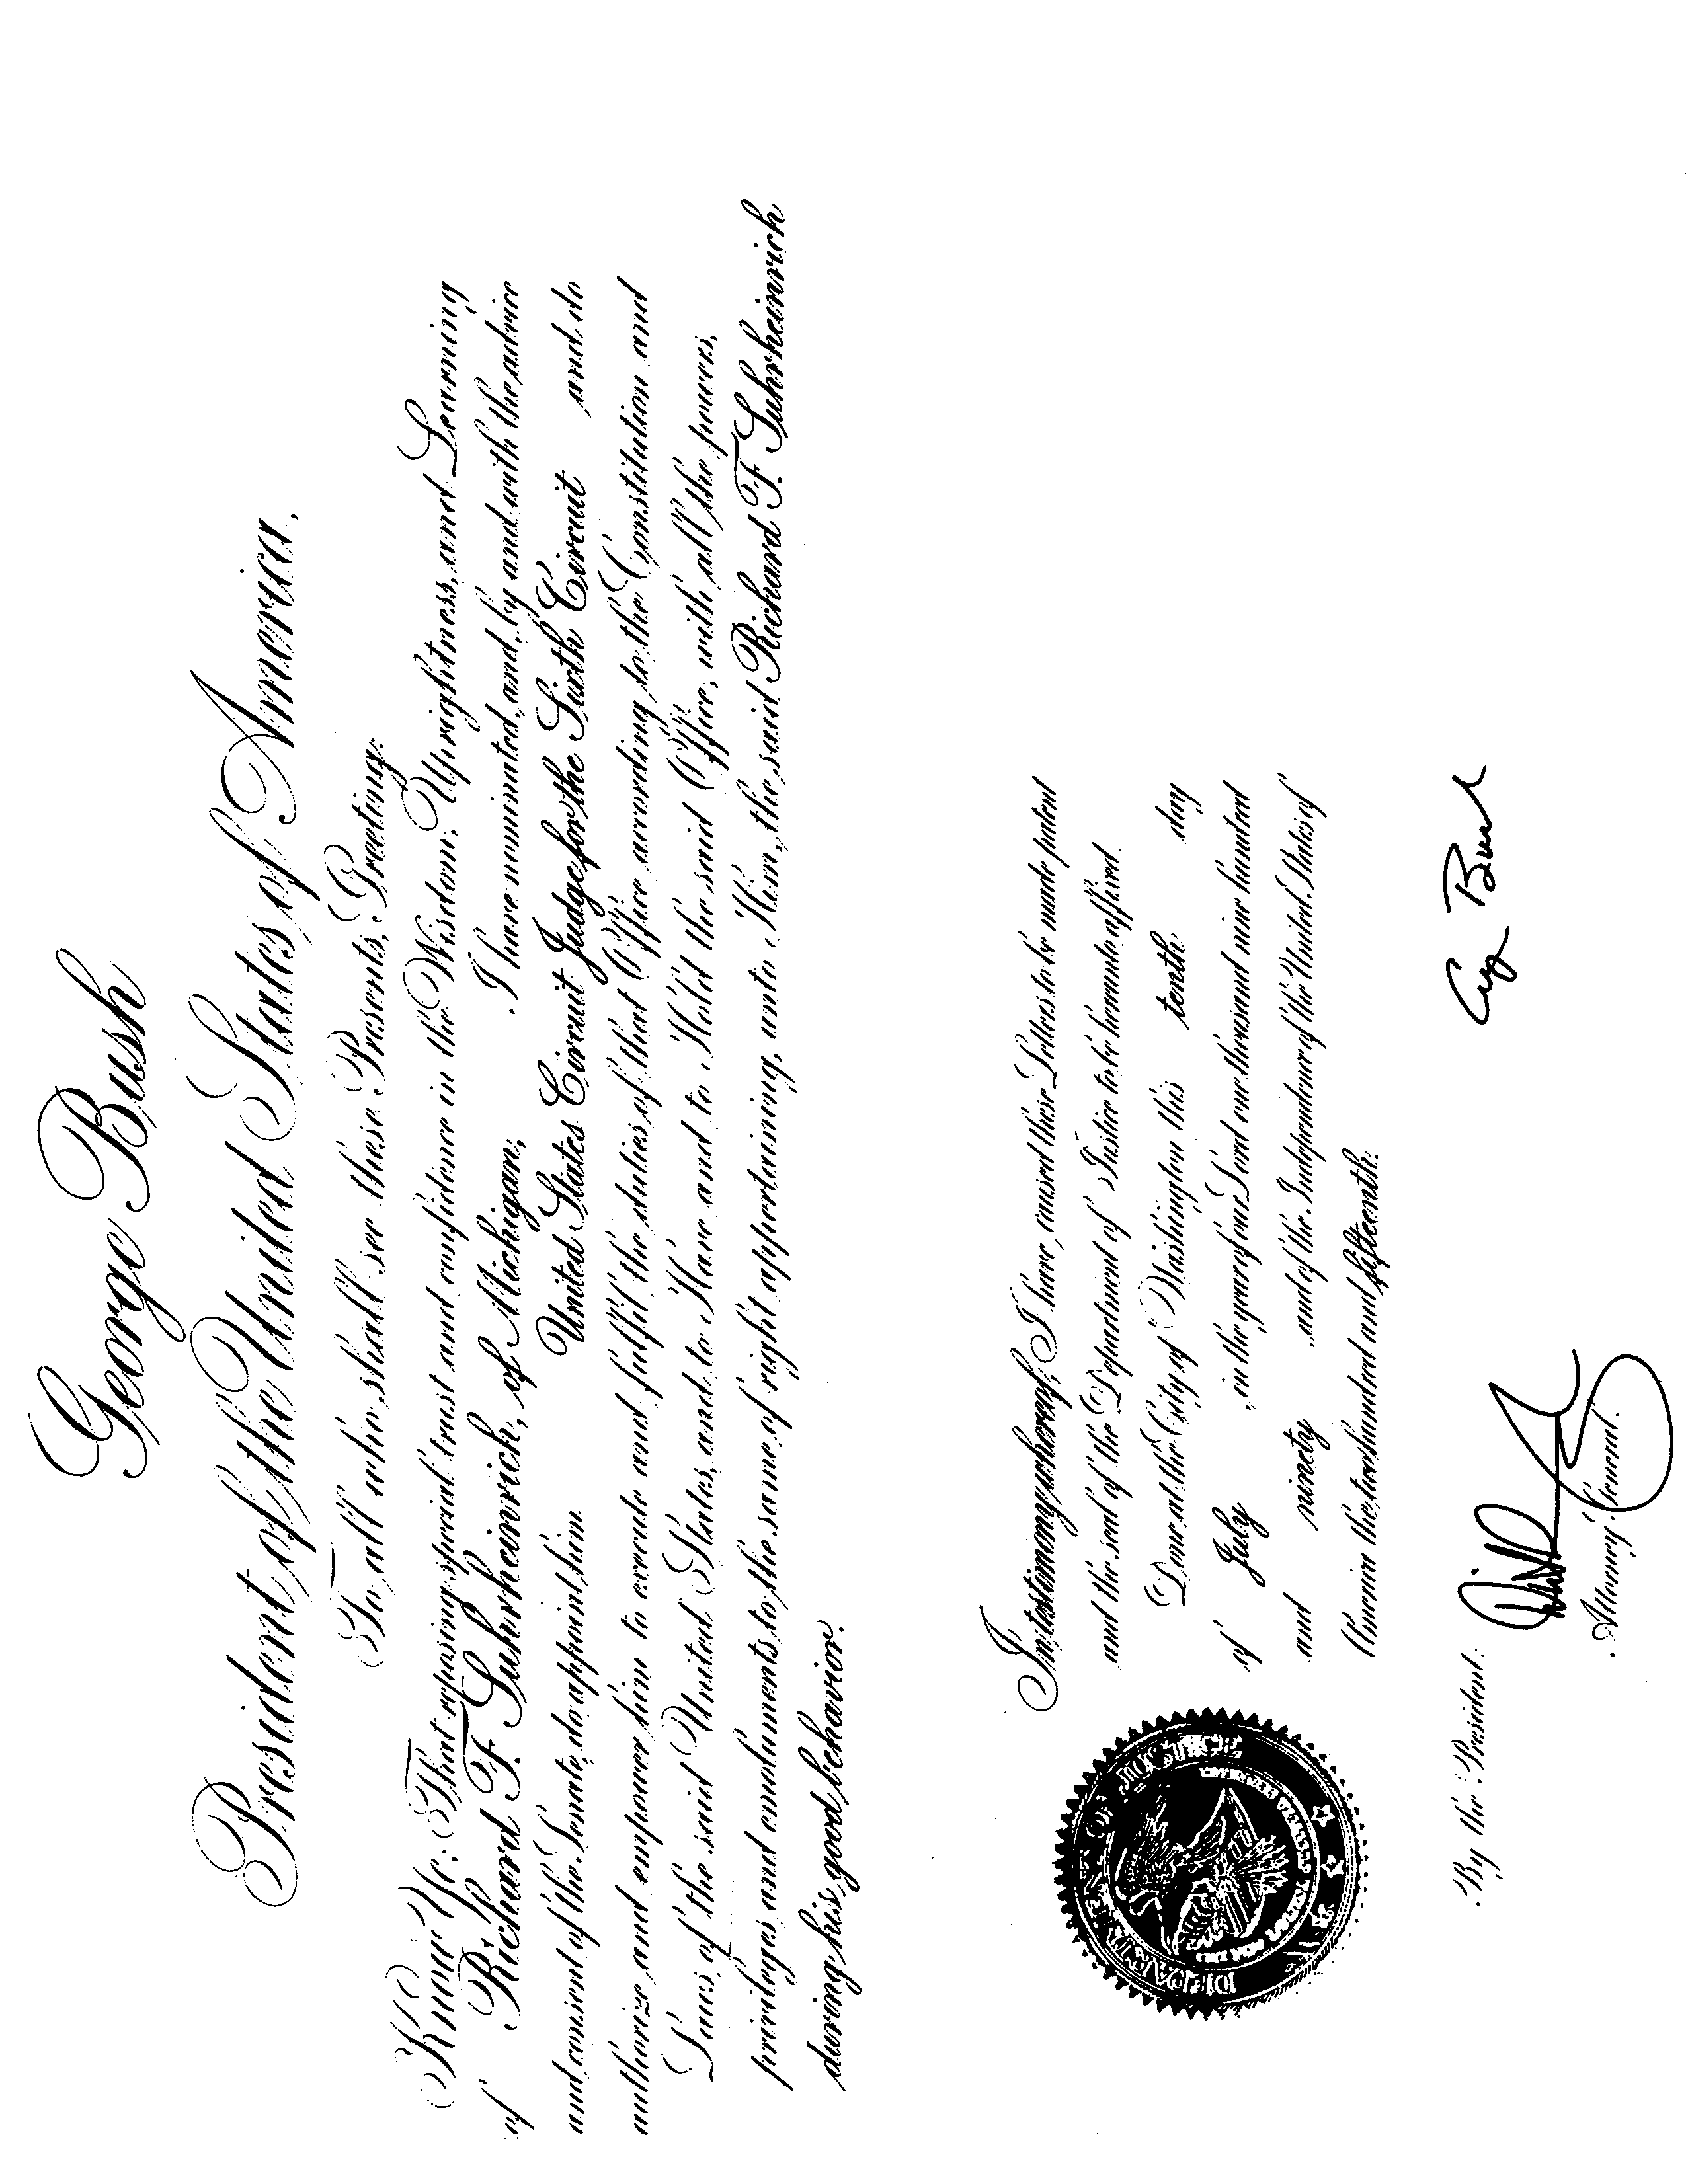 George Bush
President of the United States of America,
To all who shall see these Presents, Greeting:
Know Ye; That reposing special trust and confidence in the Wisdom, Uprightness, and Learning
of Richard F. Suhrheinrich, of Michigan, I have nominated, and, by and with the advice
and consent of the Senate, do appoint him United States Circuit Judge for the Sixth Circuit and do
authorize and empower him to execute and fulfil the duties of that Office according to the Constitution and
Laws of the said United States, and to Have and to Hold the said Office, with all the powers,
privileges and emoluments to the same of right appertaining, unto Him, the said Richard F. Suhrheinrich
during his good behavior.
In testimony whereof, I have caused these Letters to be made patent
and the seal of the Department of Justice to be hereunto affixed.
Done at the City of Washington this tenth day
of July, in the year of our Lord one thousand nine hundred
and ninety and of the Independence of the United States of
America the two hundred and fifteenth.
DEPARTMENT OF JUSTICE
By the President:
G Bush
Attorney General.